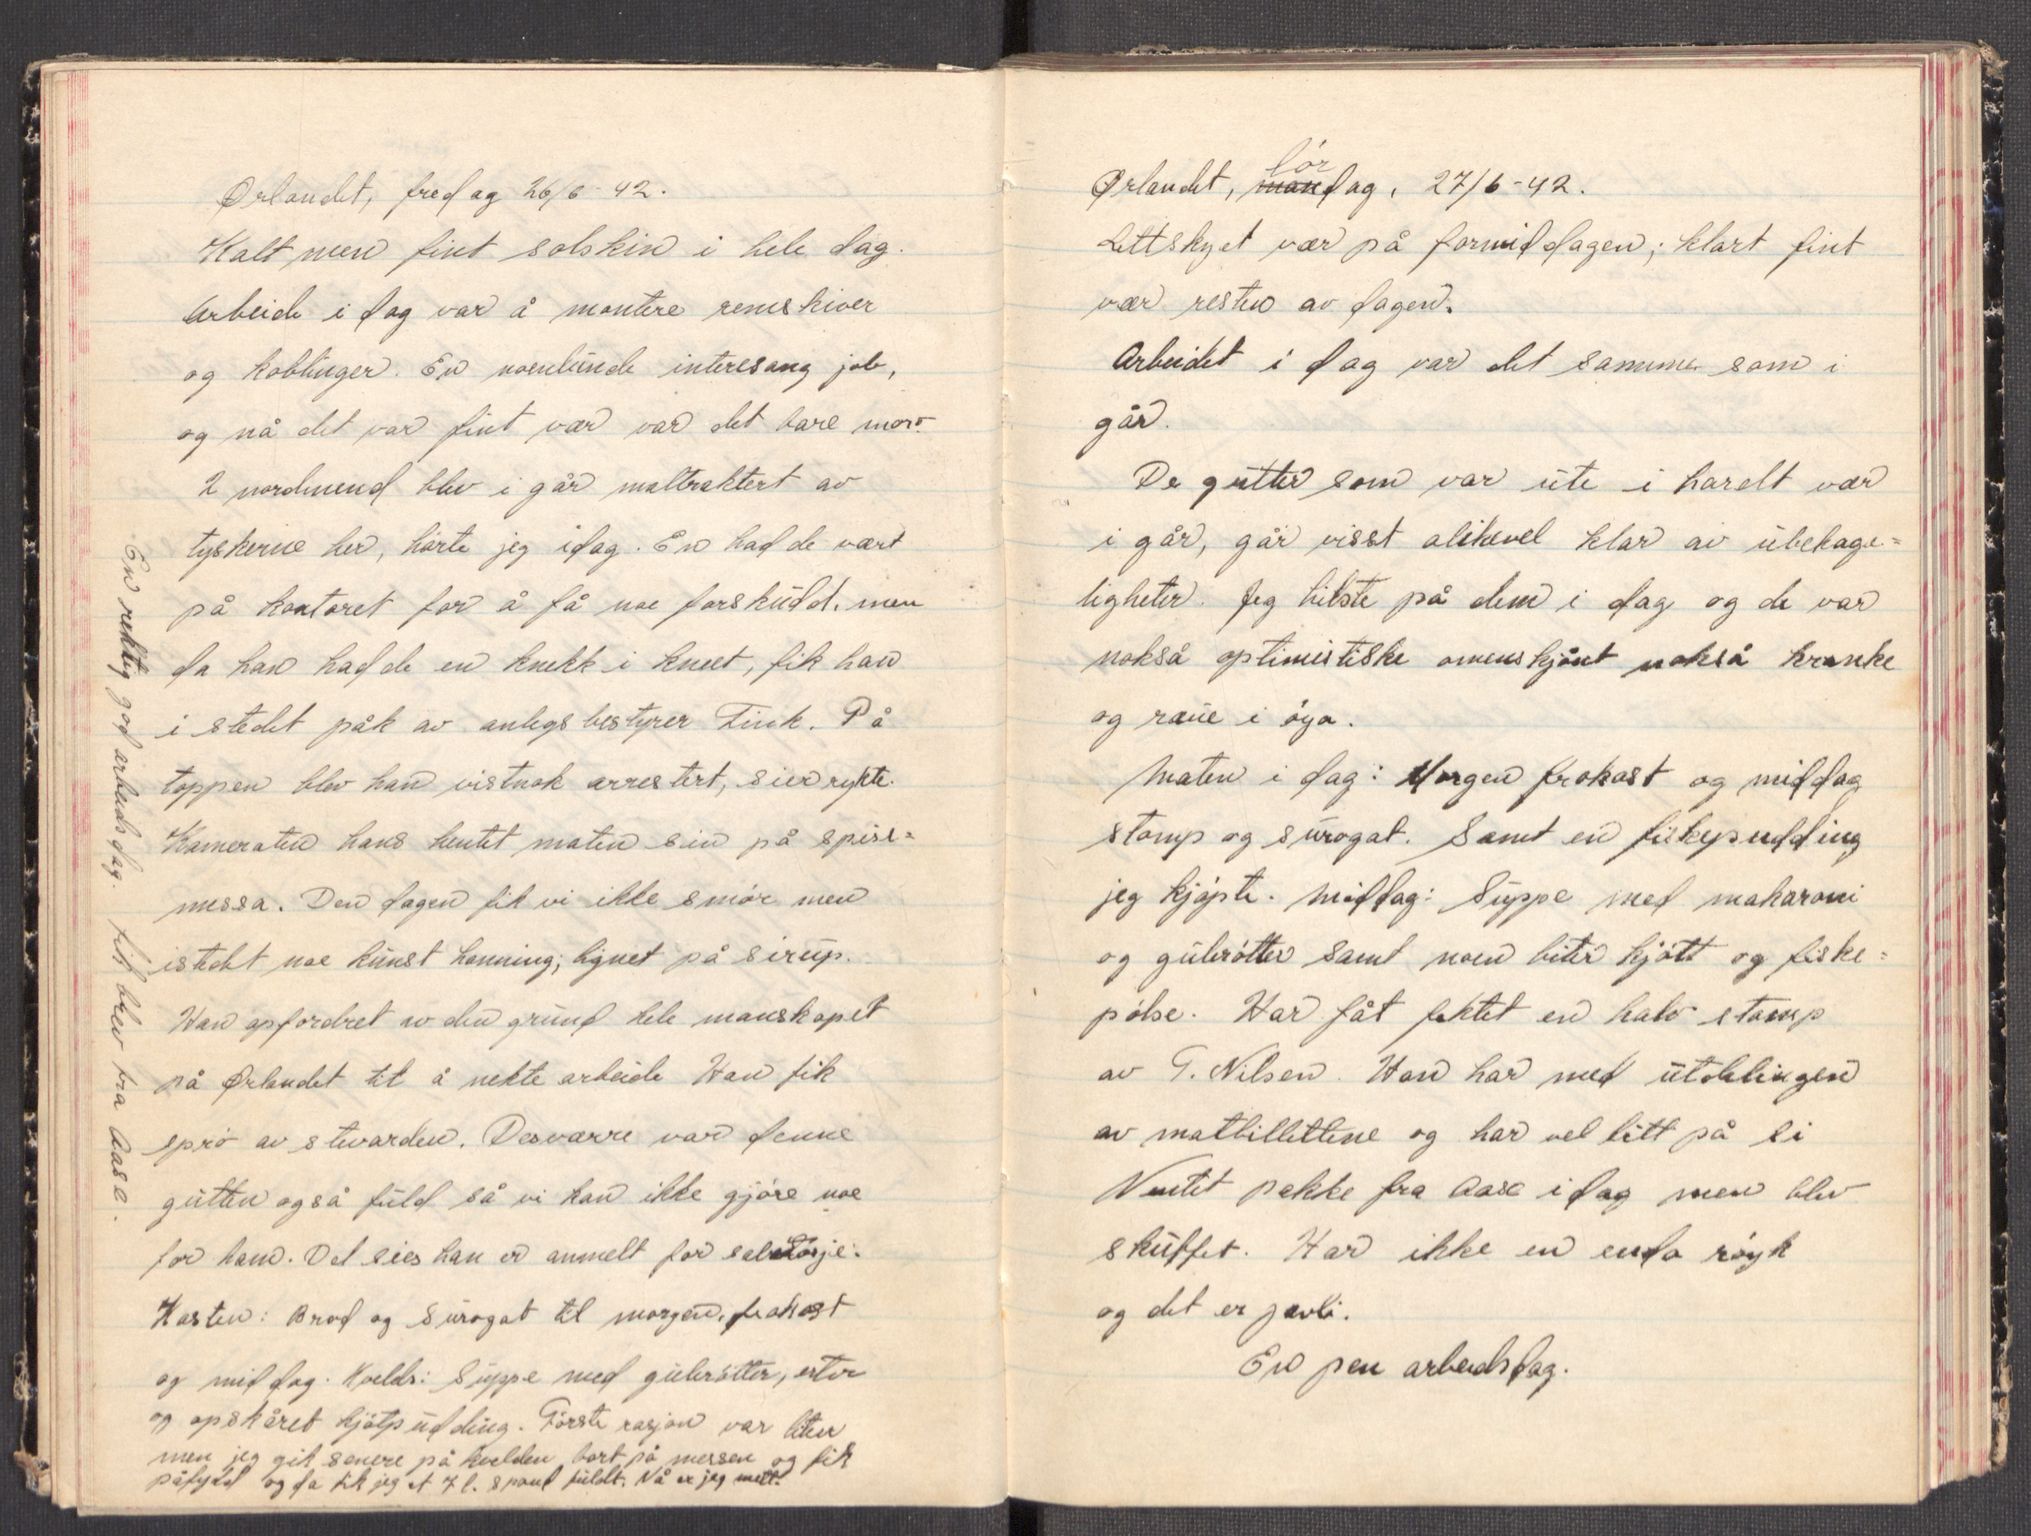 Ørlandet, fredag 26/6-42.
Kalt men fint solskin i hele dag.
Arbeide i dag var å montere remskiver
og koblinger. En noenlunde interesang job,
og nå det var fint vær var det bare moro.
2 nordmend blev i går maltraktert av
tyskerne her, hørte jeg idag. En hadde vært
på kontoret for å få noe forskudd, men
da han hadde en knekk i kneet, fik han
i stedet påk av anlegsbestyrer Fink. På
toppen blev han vistnok arrestert, sier rykte.
Kameraten hans hentet maten sin på spise-
messa. Den dagen fik vi ikke smør men
istedet noe kunst honning; lignet på sirup.
Han opfordret av den grund hele manskapet
på Ørlandet til å nekte arbeide Han fik
sprø av stuarden. Desværre var denne
gutten også fuld så vi kan ikke gjøre noe
for ham. Det sies han er anmelt for sabotasje.
Kosten: Brød og surogat til morgen, frokost
og middag. Kvelds: Suppe med gulrøtter, erter
og opskåret kjøtpudding. Første rasjon var liten
men jeg gik senere på kvelden bort på messen og fik
påfyld og da fik jeg et 7 l. spand fuldt. Nå er jeg mett.
En rektig god arbeidsdag. Fik brev fra Aase.
Ørlandet, man lør dag, 27/6-42.
Lettskyet vær på formiddagen; klart fint
vær resten av dagen.
Arbeidet i dag var det samme som i
går.
De gutter som var ute i hardt vær
i går, går visst alikevel klar av ubehage-
ligheter. Jeg hilste på dem i dag og de var
nokså optimistiske omenskjønt nokså kranke
og røue i øya.
Maten i dag: Morgen frokost og middag
stomp og surogat. Samt en fiskepudding
jeg kjøpte. Middag: Suppe med makaroni
og gulrøtter samt noen biter kjøtt og fiske-
pølse. Har fåt fektet en halv stomp
av T. Nilsen. Han har med utdelingen
av matbillettene og har vel litt på si
Ventet pakke fra Aase i dag men blev
skuffet. Har ikke en enda røyk
og det er jævli.
En pen arbeidsdag.